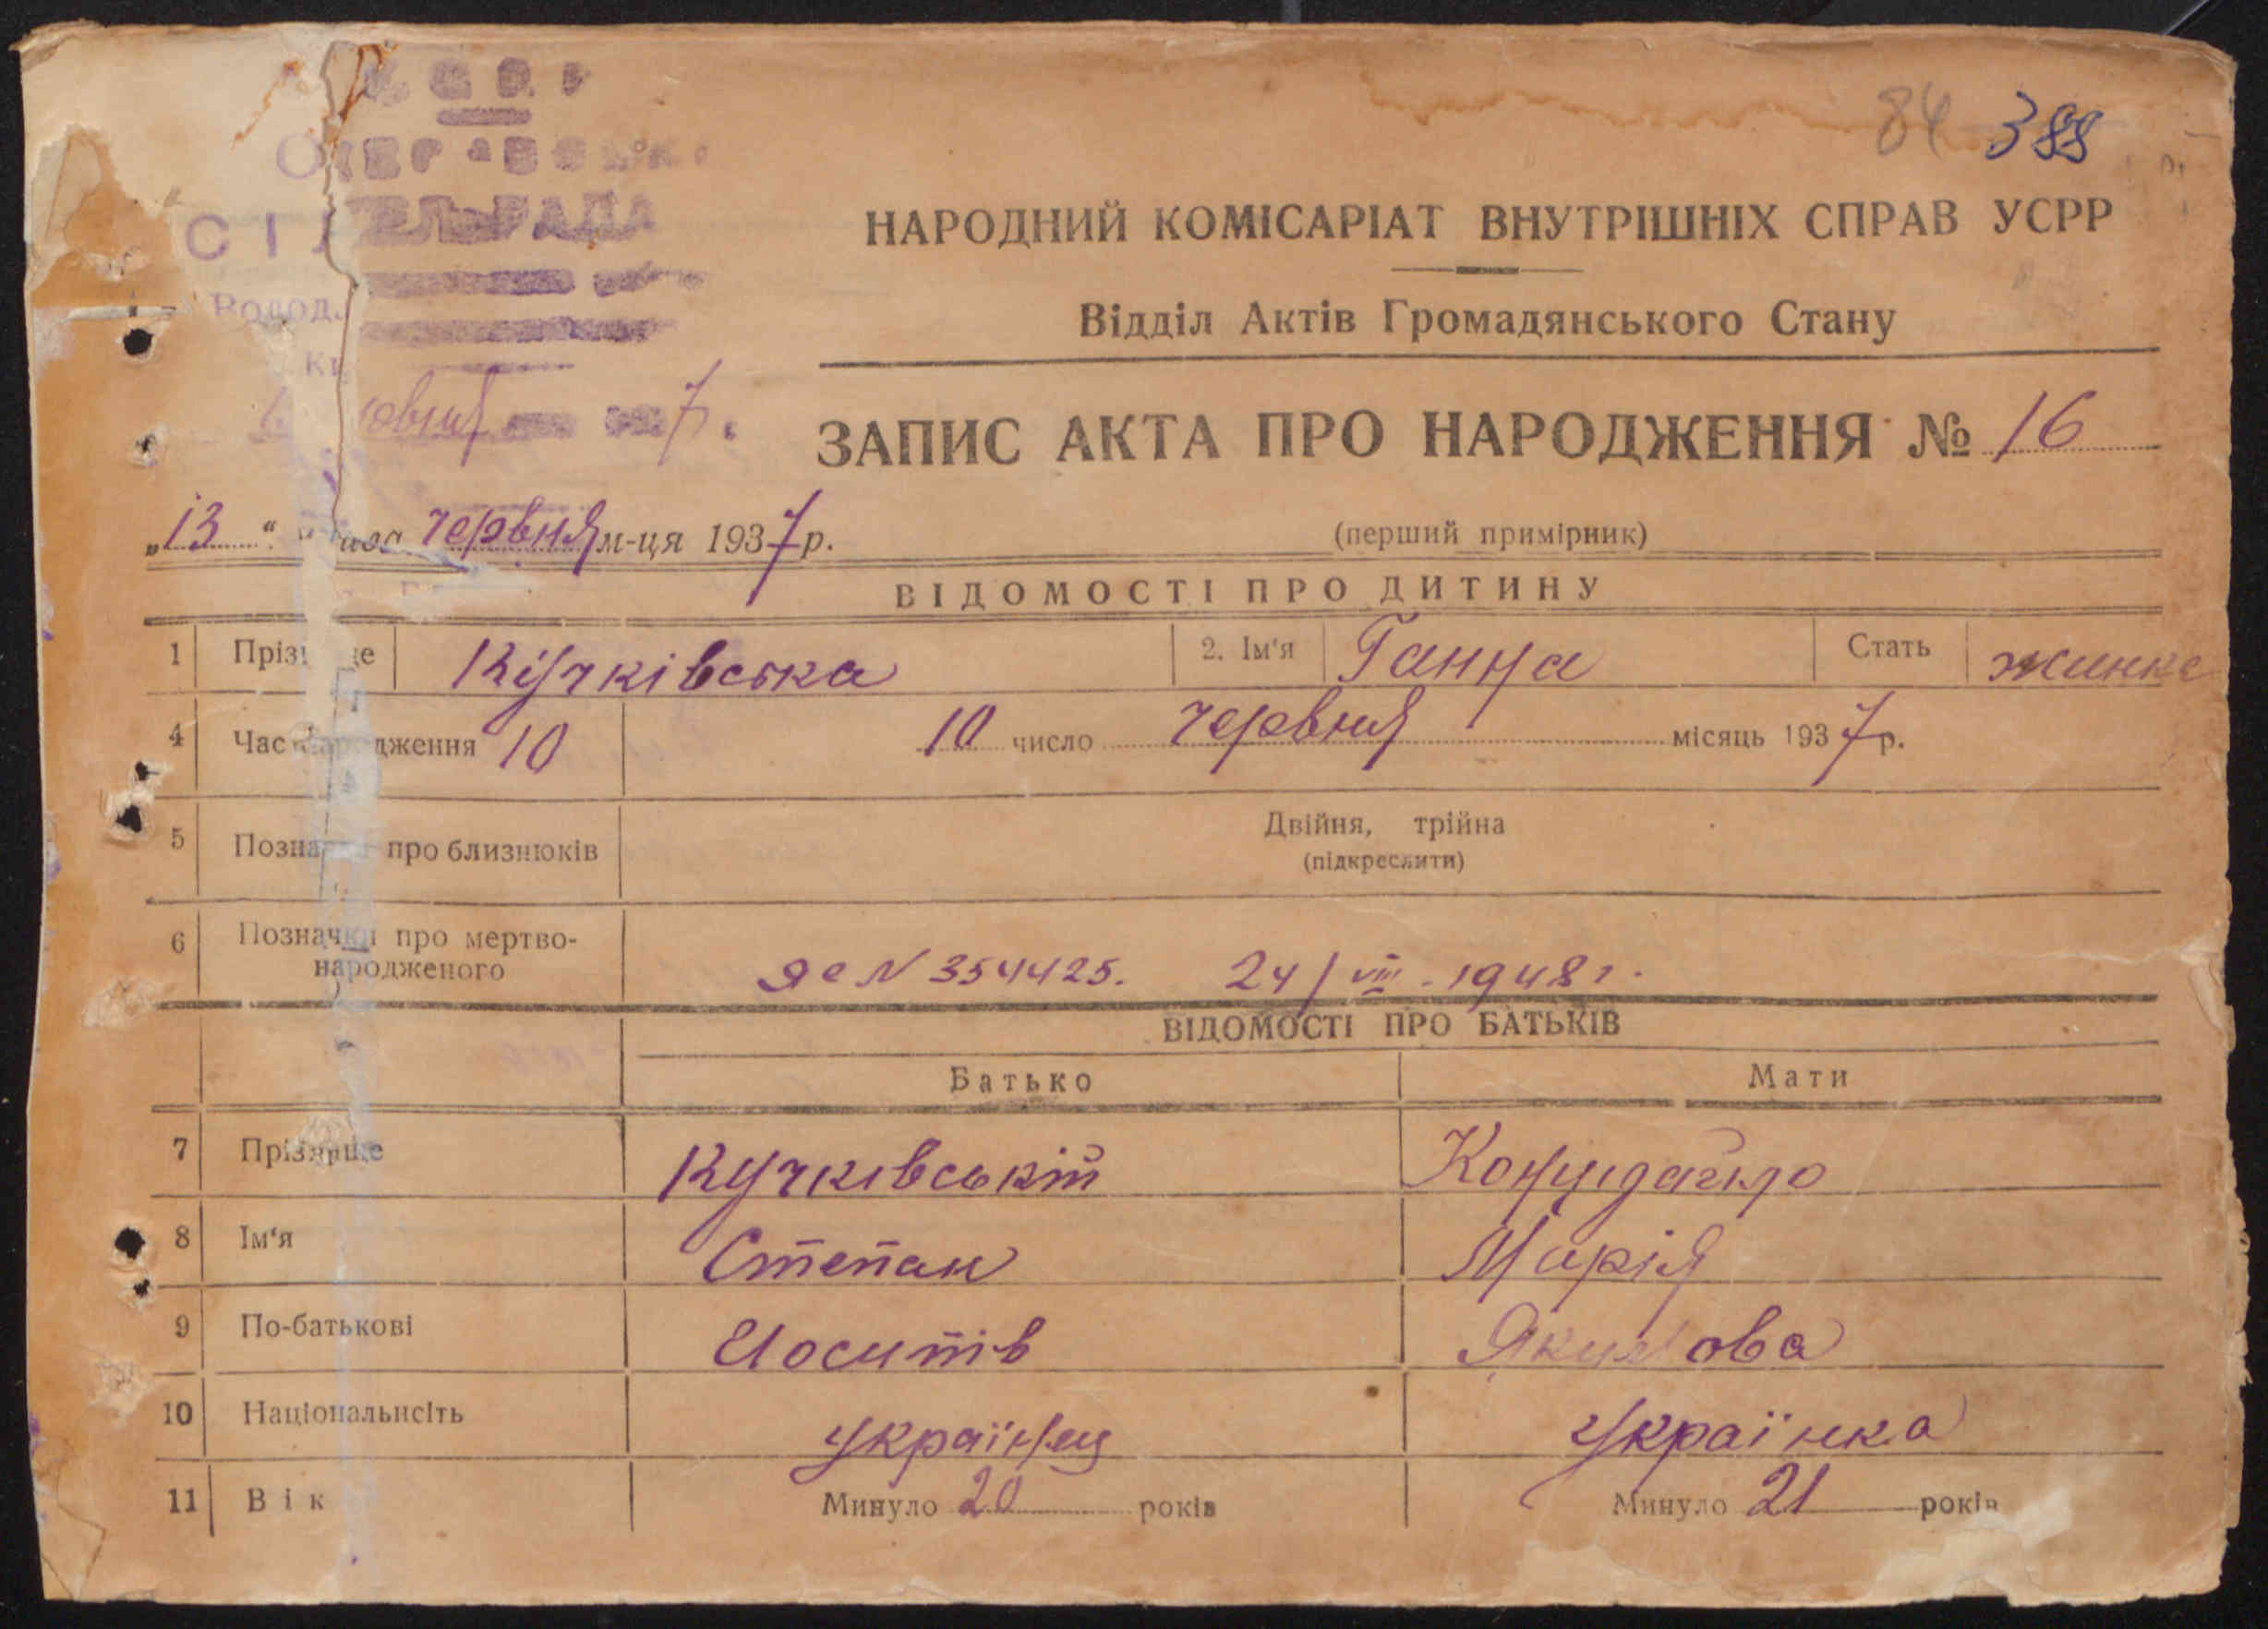 84 388
НАРОДНИЙ КОМІСАРІАТ ВНУТРІШНІХ СПРАВ УСРР
Відділ Актів Громадянського Стану
ЗАПИС АКТА ПРО НАРОДЖЕННЯ № 16
„13“ червня м-ця 1937 р.
(перший примірник)
ВІДОМОСТІ ПРО ДИТИНУ
1 Прізвище Кучківська 2. Ім'я Ганна Стать жинка
4 Час народження 10 10 число червня місяць 1937 р.
5 Позначка про близнюків Двійня, трійна
(підкреслити)
6 Позначки про мертво-
народженого
ЯС N 354425. 24/VIII-1948 г.
ВІДОМОСТІ ПРО БАТЬКІВ
Батько Мати
7 Прізвище Кучківській
8 Ім'я Степан Марія
9 По-батькові Иосипів Якимова
10 Національнсіть українец українка
11 Вік Минуло 20 років Минуло 21 років